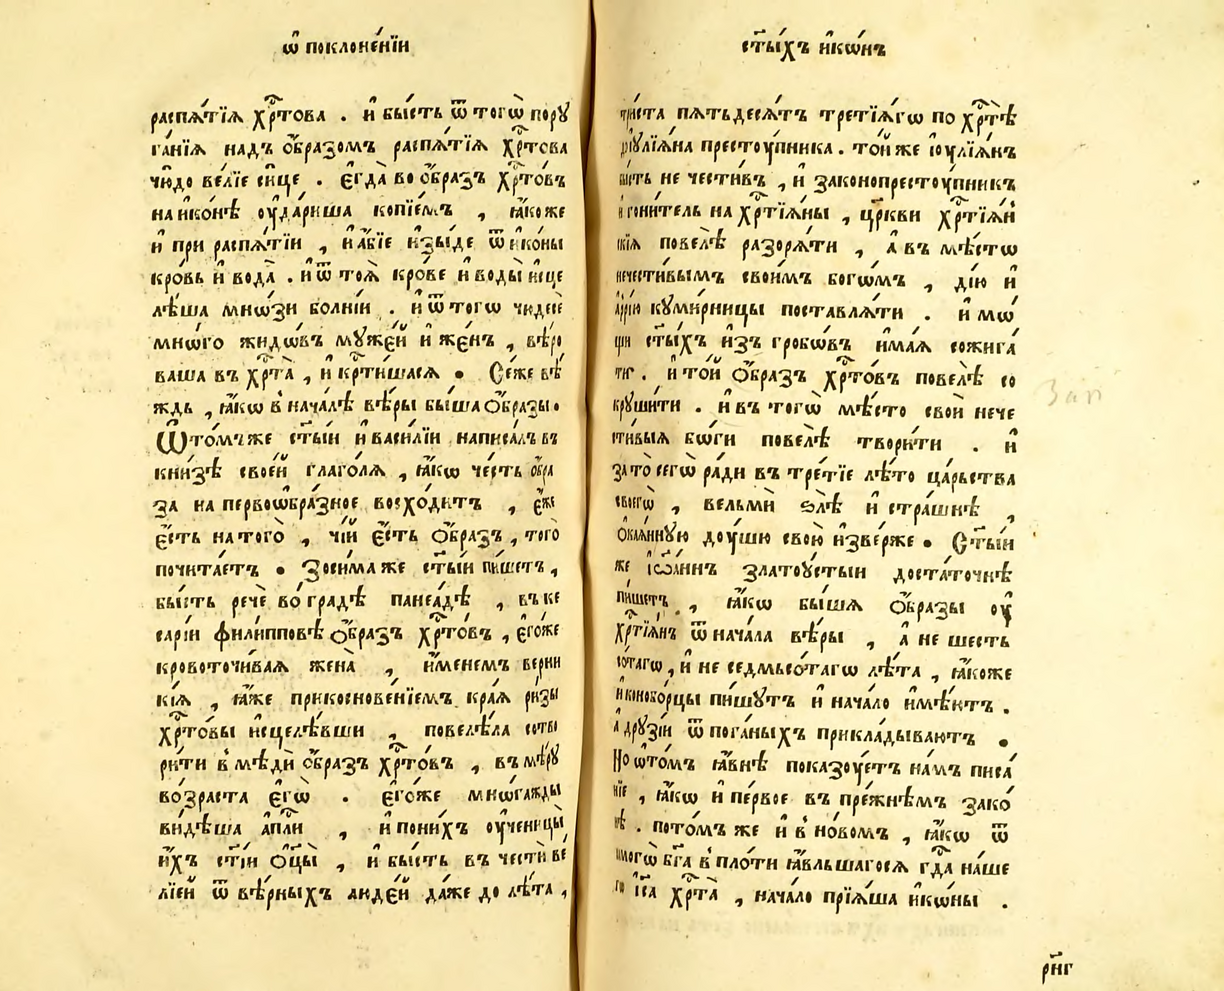 ѿ поклоне́нїи
распѧ́тїѧ хрⷭ҇то́ва . и҆ бы́сть ѿ тогѡ̀ порꙋ
га́нїѧ надъ о҆́бразомъ распѧ́тїѧ хрⷭ҇това
чю́до ве́лїе си́це . є҆гда̀ во о҆́бразъ хрⷭ҇то́въ
на и҆ко́нѣ оу҆да́риша копїе́мъ , ꙗ҆́коже
и҆ при распѧ́тїи , и҆ а҆́бїе и҆зы́де ѿ и҆ко́ны
кро́вь и҆ вода̀ . и҆ ѿ тоѧ̀ кро́ве и҆ воды̀ и҆сце
лѣ́ша мнѡ́зи болні́и . и҆ ѿ тогѡ чюдесѐ
мно́гѡ жидѡ́въ мꙋже́й и҆ же́нъ , вѣ́ро
ваша въ хрⷭ҇та̀ , и҆ крⷭ҇ти́шасѧ . Се́же вѣ́
ждь , ꙗ҆́кѡ в нача́лѣ вѣ́ры бы́ша о҆́бразы .
Ѡ҆ то́мъже ст҃ы́и и҆ васи́лїи написа́лъ въ
кни́зѣ свое́й глаго́лѧ , ꙗ҆́кѡ че́сть о҆́бра
за на первоѡ҆бра́зное восхо́дитъ , є҆́же
є҆́сть на того̀ , чі́й є҆́сть о҆́бразъ , того̀
почита́етъ . Зоси́ма же ст҃ы́й пи́шетъ ,
бы́сть речѐ во гра́дѣ панеа́дѣ , въ ке
сарі́и фили́пповѣ о҆́бразъ хрⷭ҇то́въ , є҆го́же
кровоточи́ваѧ жена̀ , и҆́менемъ верни
кі́ѧ , ꙗ҆́же прикоснове́нїемъ кра́ѧ ри́зы
хрⷭ҇то́вы и҆сцелѣ́вши , повелѣ́ла сотво
ри́ти в мѣ́ди о҆́бразъ хрⷭ҇то́въ , въ мѣ́рꙋ
во́зраста є҆гѡ̀ . є҆го́же мно́гажды
ви́дѣша а҆пⷭ҇ли , и҆ по ни́хъ оу҆ченицы̀
и҆́хъ ст҃і́и ѻ҆ц҃ы̀ , и҆ бы́сть въ че́сти ве
лїей ѿ вѣ́рныхъ люде́й да́же до лѣ́та ,
ст҃ы́хъ и҆кѡ́нъ
три́ста пѧтьдесѧ́тъ тре́тїѧгѡ по хрⷭ҇тѣ̀
і҆оулїа́на престоу́пника . то́й же і҆оулїа́нъ
бы́сть не чести́въ , и҆ законопрестоу́пникъ
и҆ гони́тель на хрⷭ҇тїа́ны , цр҃кви хрⷭ҇тїа́н
скїѧ повелѣ̀ разорѧ́ти , а҆ въ мѣ́стѡ
нечести́вымъ свои́мъ богѡ́мъ , ді́ю и҆
а҆́рїю куми́рницы поставлѧ́ти . и҆ мо́
щи ст҃ы́хъ и҆зъ гробѡ́въ и҆ма́ѧ сожига́
ти . и҆ то́й о҆́бразъ хрⷭ҇то́въ повелѣ̀ со
крꙋши́ти . и҆ въ тогѡ̀ мѣ́сто свои̑ нече
сти́выѧ бо́ги повелѣ̀ твори́ти . и҆
за то̀ сегѡ̀ ра́ди въ тре́тїе лѣ́то ца́рьства
своегѡ̀ , вельмѝ ѕлѣ̀ и҆ стра́шнѣ ,
ѻ҆каѧ́ннꙋю доу́шю свою̀ и҆зве́рже . Ст҃ы́и
же і҆ѡа́ннъ златоу́стыи доста́точнѣ
пи́шетъ , ꙗ҆́кѡ бы́шѧ о҆́бразы оу҆
хрⷭ҇тїѧ́нъ ѿ нача́ла вѣ́ры , а҆ не ше́сть
со́тагѡ , и҆ не седмьсо́тагѡ лѣ́та , ꙗ҆́коже
и҆коноборцы пи́шꙋтъ и҆ нача́ло и҆мѣ́ютъ .
а҆ дрꙋзі́и ѿ пога́ныхъ прикла́дываютъ .
Но ѡ҆ то́мъ ꙗ҆́внѣ показоу́етъ на́мъ писа́
нїе , ꙗ҆́кѡ и҆ пе́рвое въ пре́жнѣмъ зако́
нѣ . пото́мъ же и҆ в но́вомъ , ꙗ҆́кѡ ѿ
самогѡ̀ бг҃а в пло́ти ꙗ҆́вльшагосѧ гдⷭ҇а на́ше
го і҆с҃а хрⷭ҇та̀ , нача́ло прїѧ́ша и҆кѡ́ны .
рн҃г